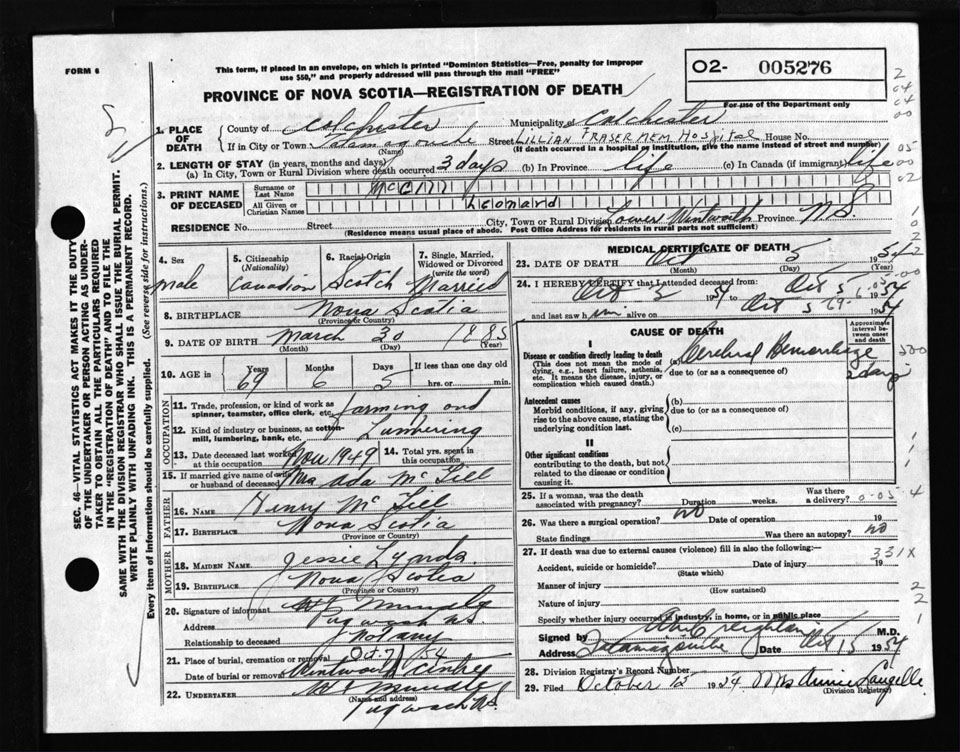 FORM 6
This form, if placed in an envelope, on which is printed "Dominion Statistics—Free, penalty for improper
use $50," and properly addressed will pass through the mail "FREE"
O2- 005276
For use of the Department only
PROVINCE OF NOVA SCOTIA—REGISTRATION OF DEATH
1. PLACE OF DEATH
County of Colchester Municipality of Colchester
If in City or Town Tatamagouche (Name) Street LILLIAN FRASER MEM HOSPITAL House No.
(If death occurred in a hospital or institution, give the name instead of street and number)
2. LENGTH OF STAY (in years, months and days)
(a) In City, Town or Rural Division where death occurred 3 days (b) In Province life (c) In Canada (if immigrant) life
3. PRINT NAME OF DECEASED
Surname or Last Name McGill
All Given or Christian Names Leonard
RESIDENCE No. Street City, Town or Rural Division Lower Wentworth Province N.S.
(Residence means usual place of abode. Post Office Address for residents in rural parts not sufficient)
4. Sex male
5. Citizenship (Nationality) Canadian
6. Racial Origin Scotch
7. Single, Married, Widowed or Divorced (write the word) Married
8. BIRTHPLACE Nova Scotia
(Province or Country)
9. DATE OF BIRTH March 30 1885
(Month) (Day) (Year)
10. AGE Years 69 Months 6 Days 5 If less than one day old
hrs. or min.
OCCUPATION
11. Trade, profession, or kind of work as spinner, teamster, office clerk, etc. farming and
12. Kind of industry or business, as cotton-mill, lumbering, bank, etc. Lumbering
13. Date deceased last worked at this occupation Nov 1949 14. Total yrs. spent in this occupation
15. If married give name of wife or husband of deceased Mrs Ada McGill
FATHER
16. NAME Henry McGill
17. BIRTHPLACE Nova Scotia
(Province or Country)
MOTHER
18. MAIDEN NAME Jessie Lynds
19. BIRTHPLACE Nova Scotia
(Province or Country)
20. Signature of informant
Address Pugwash NS
Relationship to deceased Notary
21. Place of burial, cremation or removal Wentworth Centre
Date of burial or removal Oct 7/54
22. UNDERTAKER
(Name and address)
Pugwash NS
MEDICAL CERTIFICATE OF DEATH
23. DATE OF DEATH Oct 5 1954
(Month) (Day) (Year)
24. I HEREBY CERTIFY that I attended deceased from
Oct 2 1954 to Oct 5 1954
and last saw him alive on Oct 5 1954
CAUSE OF DEATH
Approximate interval between onset and death
I
Disease or condition directly leading to death
(This does not mean the mode of dying, e.g., heart failure, asthenia, etc. It means the disease, injury, or complication which caused death.)
(a) Cerebral Hemorrhage
due to (or as a consequence of)
2 days
Antecedent causes
Morbid conditions, if any, giving rise to the above cause, stating the underlying condition last.
(b)
due to (or as a consequence of)
(c)
II
Other significant conditions
contributing to the death, but not related to the disease or condition causing it.
25. If a woman, was the death associated with pregnancy? Duration weeks. Was there a delivery?
26. Was there a surgical operation? NO Date of operation 19
State findings Was there an autopsy? NO
27. If death was due to external causes (violence) fill in also the following:—
Accident, suicide or homicide? (State which) Date of injury 19
Manner of injury (How sustained)
Nature of injury
Specify whether injury occurred in industry, in home, or in public place
Signed by Creighton M.D.
Address Tatamagouche Date Oct 15 1954
28. Division Registrar's Record Number
29. Filed October 15 1954 Mrs Annie Langille
(Division Registrar)
331X
SEC. 46—VITAL STATISTICS ACT MAKES IT THE DUTY
OF THE UNDERTAKER OR PERSON ACTING AS UNDER-
TAKER TO OBTAIN ALL THE PARTICULARS REQUIRED
IN THE "REGISTRATION OF DEATH" AND TO FILE THE
SAME WITH THE DIVISION REGISTRAR WHO SHALL ISSUE THE BURIAL PERMIT.
WRITE PLAINLY WITH UNFADING INK. THIS IS A PERMANENT RECORD.
Every item of information should be carefully supplied. (See reverse side for instructions.)